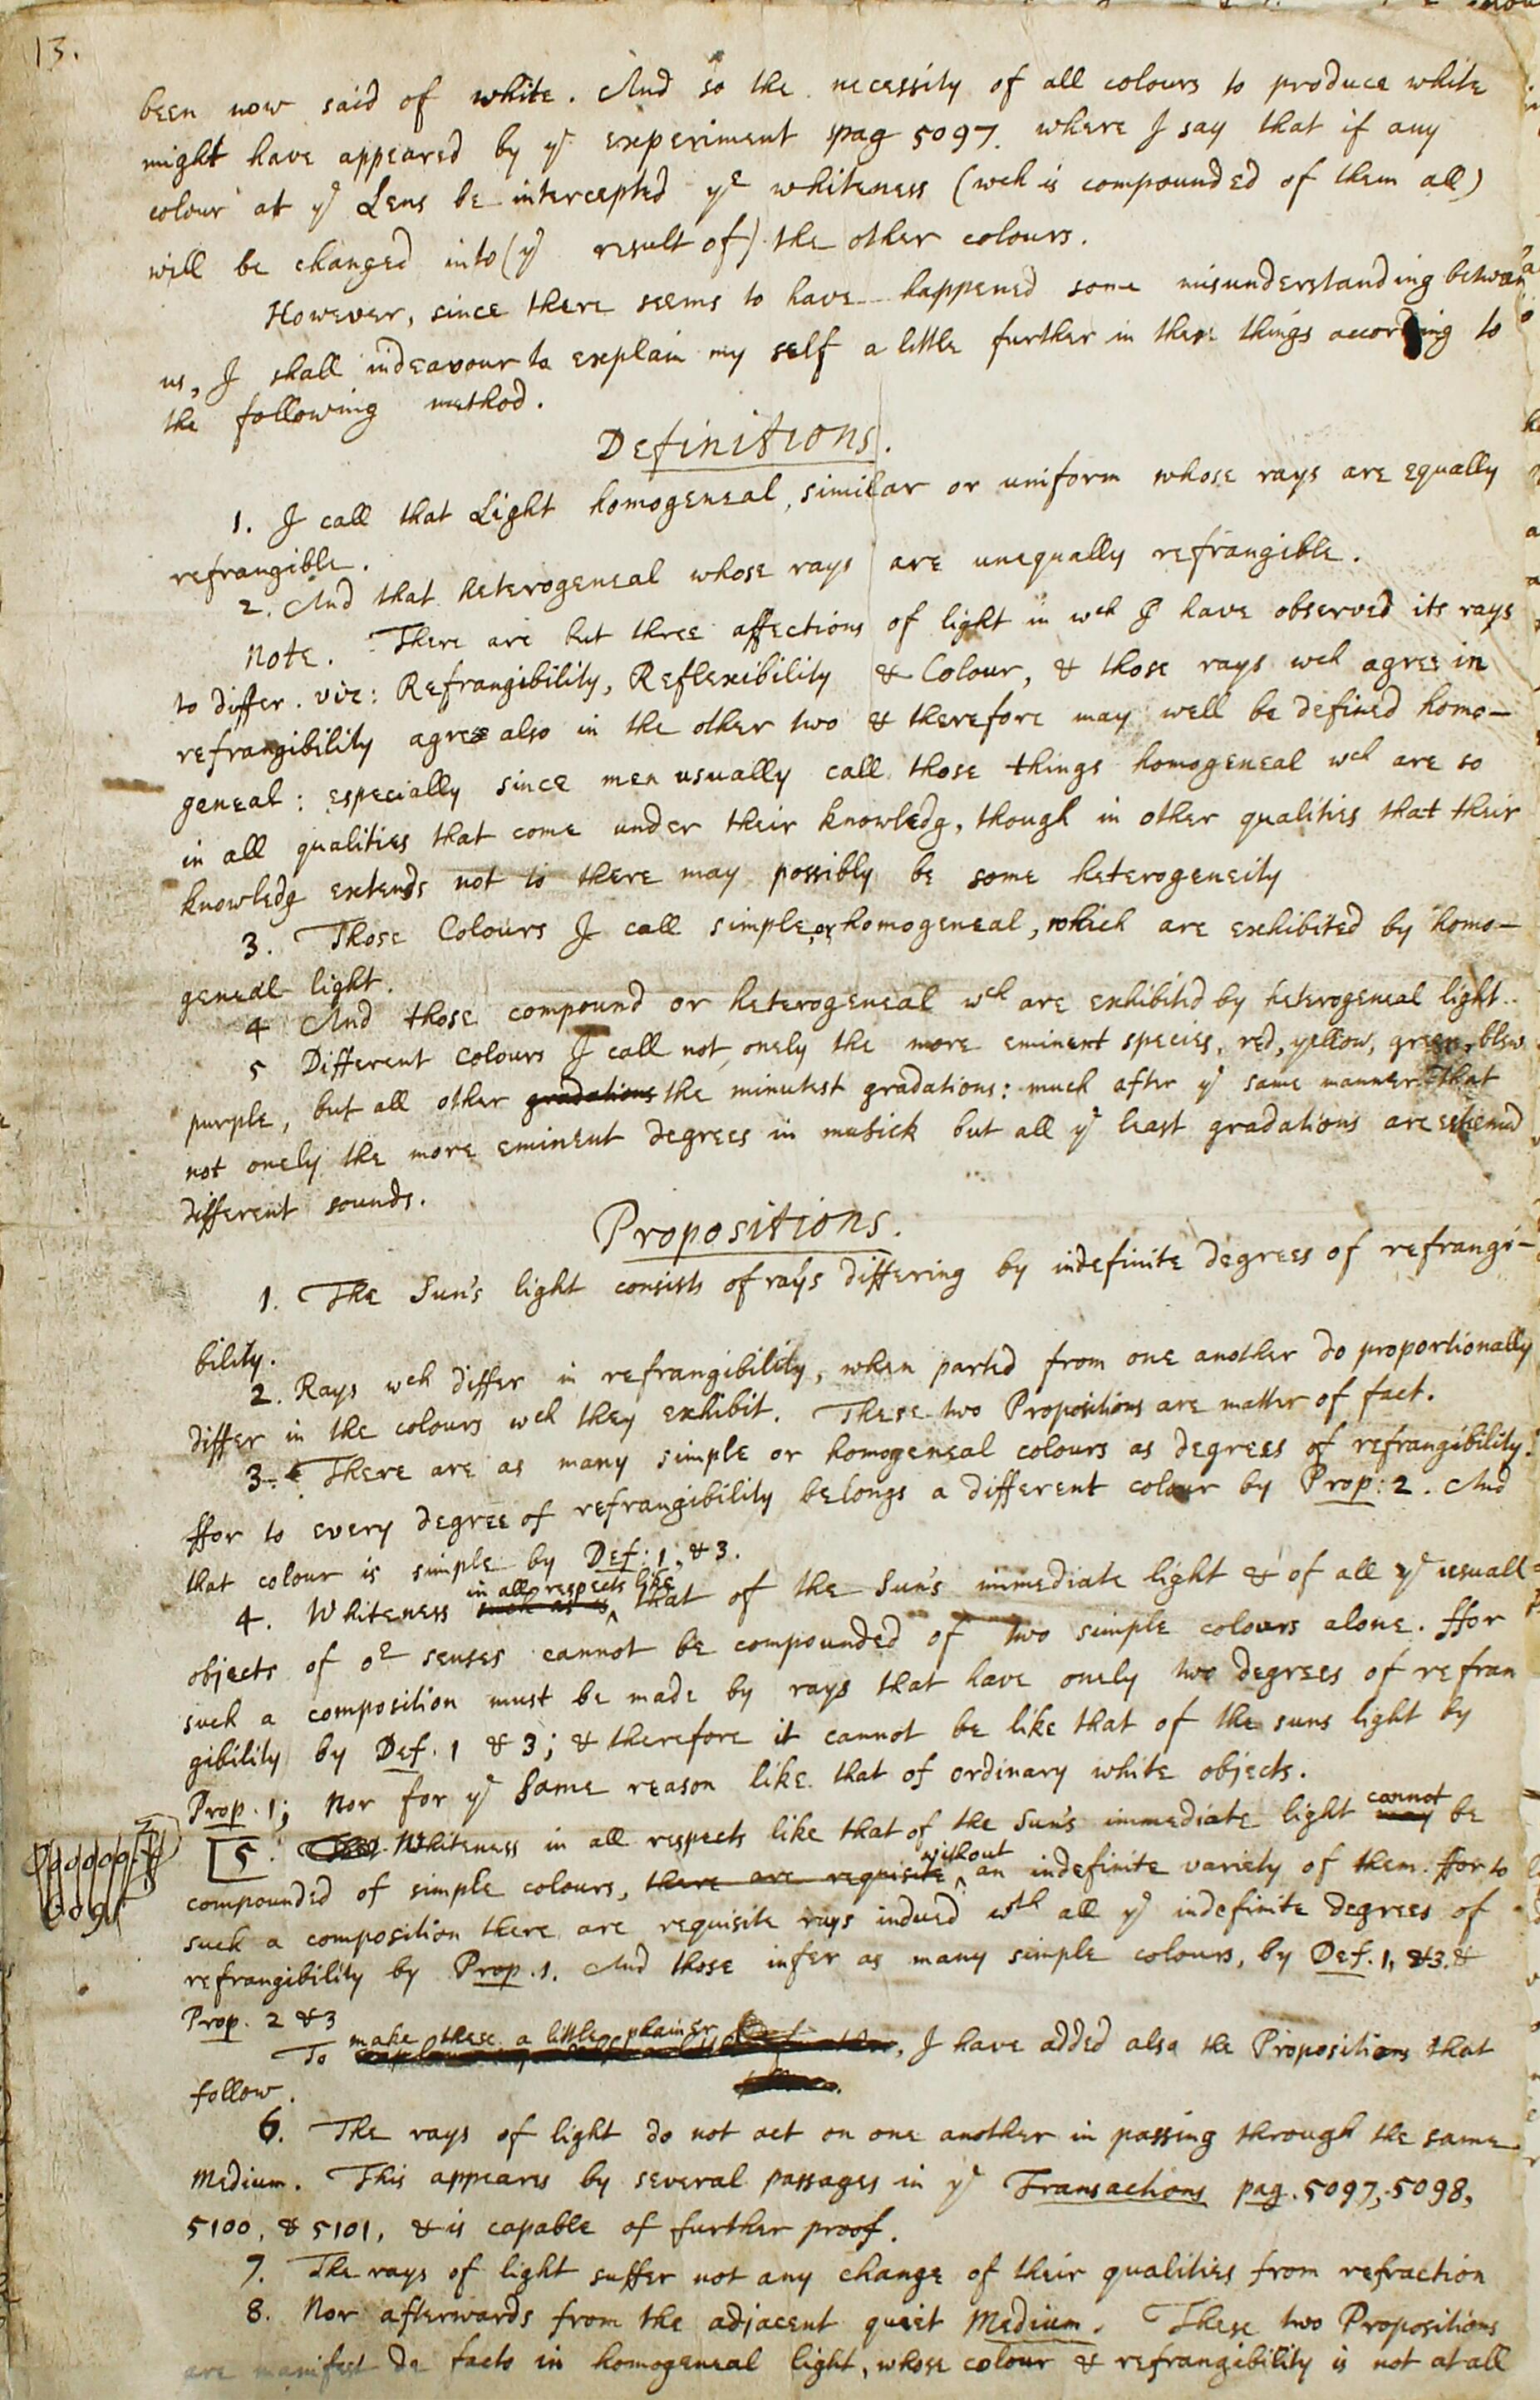 13.
been now said of white. And so the necessity of all colours to produce white
might have appeared by yᵉ experiment pag 5097. where I say that if any
colour at yᵉ Lens be intercepted yᵉ whiteness (wᶜʰ is compounded of them all)
will be changed into (yᵉ result of) the other colours.
However, since there seems to have happened some misunderstanding between
us, I shall indeavour to explain my self a little further in these things according to
the following method.
Definitions.
1. I call that Light homogeneal, similar or uniform whose rays are equally
refrangible.
2. And that heterogeneal whose rays are unequally refrangible.
Note. There are but three affections of light in wᶜʰ I have observed its rays
to differ. viz: Refrangibility, Reflexibility & Colour, & those rays wᶜʰ agree in
refrangibility agree also in the other two & therefore may well be defined homo-
geneal: especially since men usually call those things homogeneal wᶜʰ are so
in all qualities that come under their knowledg, though in other qualities that their
knowledg extends not to there may possibly be some heterogeneity
3. Those Colours I call simple, or homogeneal, which are exhibited by homo-
geneal light.
4 And those compound or heterogeneal wᶜʰ are exhibited by heterogeneal light.
5 Different Colours I call not onely the more eminent species, red, yellow, green, blew
purple, but all other gradations the minutest gradations: much after yᵉ same manner that
not onely the more eminent degrees in musick but all yᵉ least gradations are esteemed
different sounds.
Propositions.
1. The Sun's light consists of rays differing by indefinite degrees of refrangi-
bility.
2. Rays wᶜʰ differ in refrangibility, when parted from one another do proportionally
differ in the colours wᶜʰ they exhibit. These two Propositions are matter of fact.
3. There are as many simple or homogeneal colours as degrees of refrangibility.
ffor to every degree of refrangibility belongs a different colour by Prop: 2. And
that colour is simple by Def: 1, & 3.
in all respects like
4. Whiteness such as is that of the Sun's immediate light & of all yᵉ usuall
objects of oʳ senses cannot be compounded of two simple colours alone. ffor
such a composition must be made by rays that have onely two degrees of refran
gibility by Def. 1 & 3; & therefore it cannot be like that of the suns light by
Prop. 1; Nor for yᵉ same reason like that of ordinary white objects.
cannot
5. Whiteness in all respects like that of the Sun's immediate light may be
without
compounded of simple colours, there are requisite an indefinite variety of them. ffor to
such a composition there are requisite rays indued wᵗʰ all yᵉ indefinite degrees of
refrangibility by Prop. 1. And those infer as many simple colours, by Def. 1, & 3. &
Prop. 2 & 3
make these a little plainer
To , I have added also the Propositions that
follow.
6. The rays of light do not act on one another in passing through the same
Medium. This appears by several passages in yᵉ Transactions pag. 5097, 5098,
5100, & 5101, & is capable of further proof.
7. The rays of light suffer not any change of their qualities from refraction
8. Nor afterwards from the adjacent quiet Medium. These two Propositions
are manifest de facto in homogeneal light, whose colour & refrangibility is not at all